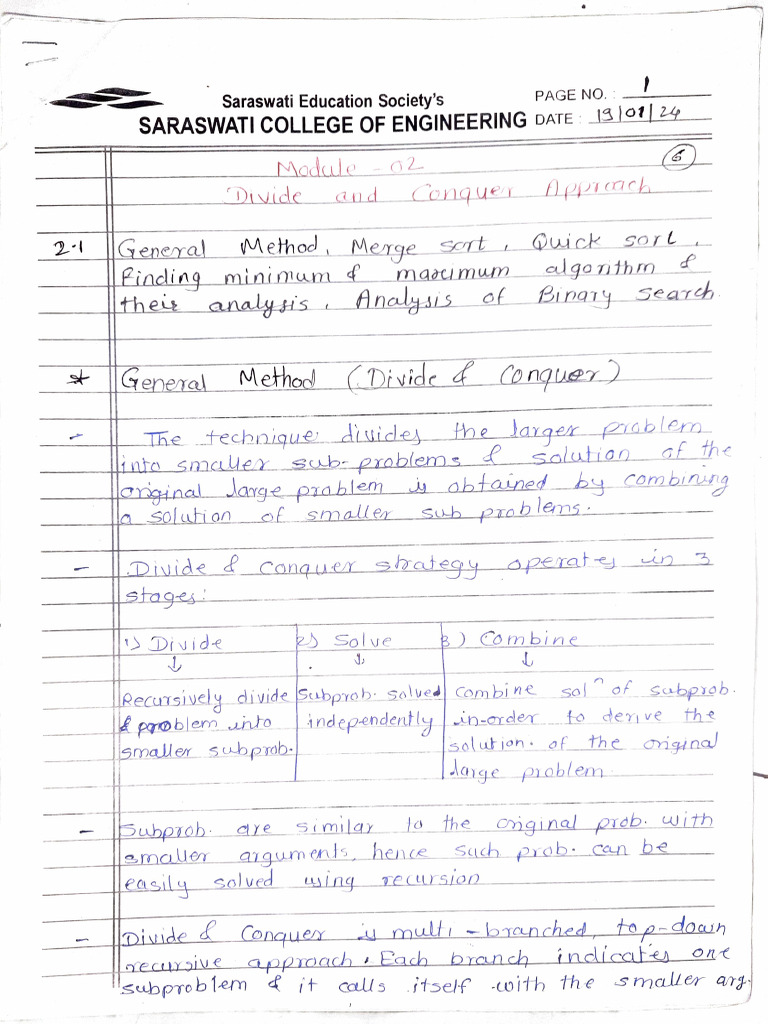 Saraswati Education Society's
SARASWATI COLLEGE OF ENGINEERING
PAGE NO. : 1
DATE : 19/01/24
6
Module - 02
Divide and Conquer Approach
2.1 General Method, Merge sort, Quick sort,
Finding minimum & maximum algorithm &
their analysis, Analysis of Binary search.
* General Method (Divide & Conquer)
- The technique divides the larger problem
into smaller sub-problems & solution of the
original large problem is obtained by combining
a solution of smaller sub problems.
- Divide & Conquer strategy operates in 3
stages:
1) Divide
↓
Recursively divide
& problem into
smaller subprob.
2) Solve
↓
Subprob. solved
independently
3) Combine
↓
Combine solⁿ of subprob.
in-order to derive the
solution. of the original
large problem
- Subprob. are similar to the original prob. with
smaller arguments, hence such prob. can be
easily solved using recursion
- Divide & Conquer is multi-branched, top-down
recursive approach. Each branch indicates one
subproblem & it calls itself with the smaller arg.